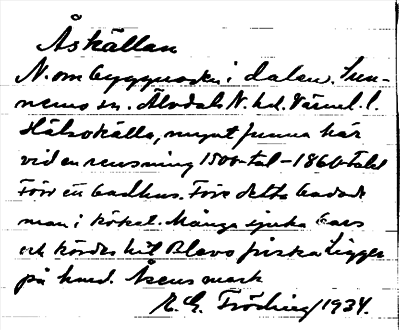 Åskällan
N. om byggnaden i dalen. Sun-
nemo sn. Älvdals N. hd. Värml. l.
Hälsokälla, mynt funna här
vid en rensning 1500-tal-1860-talet
Förr ett badhus. Före detta badade
man i köket. Många sjuka bars
och kördes hit Blevo friska Ligger
på land. Åsens mark
E. G. Fröding/1934.